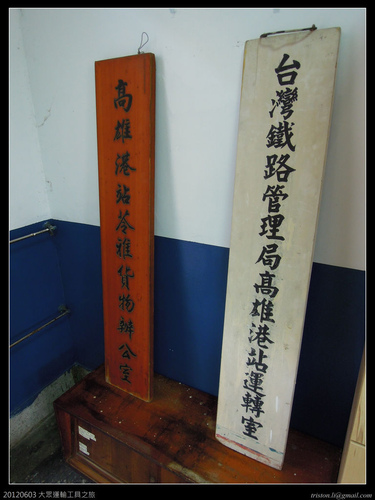 台灣鐵路管理局高雄港站運轉室
高雄港站苓雅貨物辦公室
20120603 大眾運輸工具之旅
triston.li@gmail.com